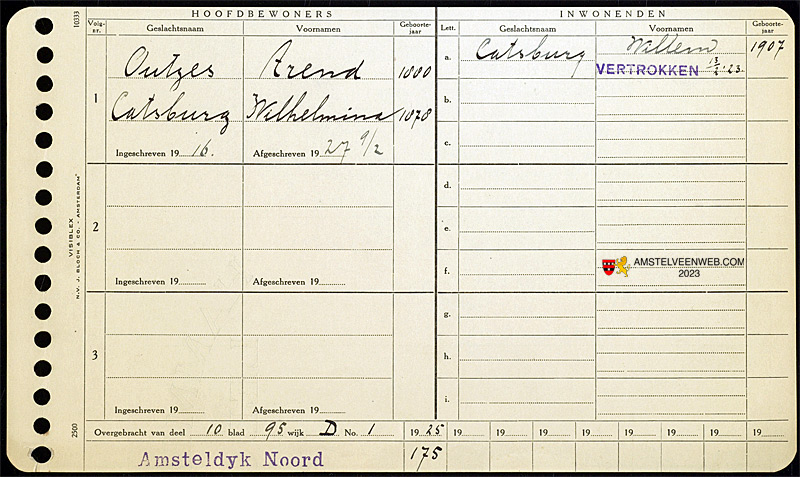 HOOFDBEWONERS
INWONENDEN
10333
Volg-nr. Geslachtsnaam Voornamen Geboorte-jaar
Lett. Geslachtsnaam Voornamen Geboorte-jaar
1
Outges Arend
Catsburg Wilhelmina 1878
Ingeschreven 19 16. Afgeschreven 19 27 9/2
a. Catsburg Willem 1907
VERTROKKEN 13/2 '23
b.
c.
2
Ingeschreven 19 Afgeschreven 19
d.
e.
f.
AMSTELVEENWEB.COM
2023
3
Ingeschreven 19 Afgeschreven 19
g.
h.
i.
VISIBLEX
N.V. J. BLOCH & CO. - AMSTERDAM
2500
Overgebracht van deel 10 blad 95 wijk D No. 1 19 25 19 19 19 19 19 19 19 19
Amsteldyk Noord 175